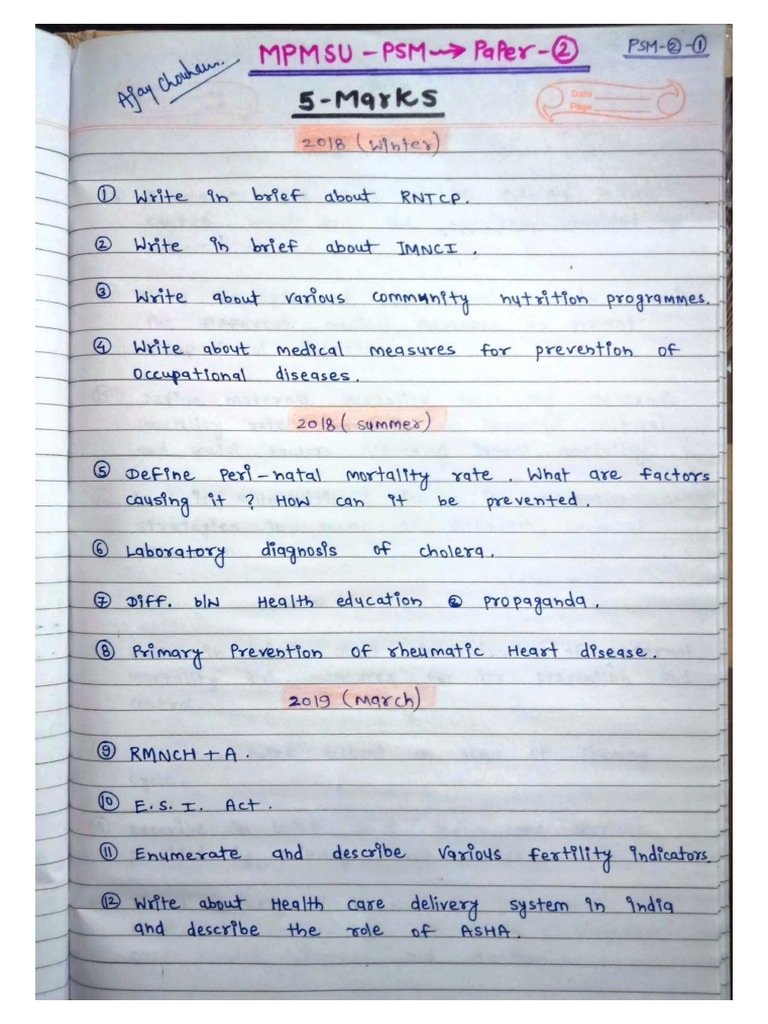 MPMSU - PSM → Paper - ②
PSM-②-①
Ajay Chouhan
5-Marks
Date
Page
2018 (Winter)
① Write in brief about RNTCP.
② Write in brief about IMNCI.
③ Write about various community nutrition programmes.
④ Write about medical measures for prevention of
occupational diseases.
2018 (summer)
⑤ Define Peri-natal mortality rate. What are factors
causing it? How can it be prevented.
⑥ Laboratory diagnosis of cholera.
⑦ Diff. b/w Health education & propaganda.
⑧ Primary Prevention of rheumatic Heart disease.
2019 (March)
⑨ RMNCH + A.
⑩ E.S.I. Act.
⑪ Enumerate and describe various fertility indicators
⑫ Write about Health care delivery system in India
and describe the role of ASHA.